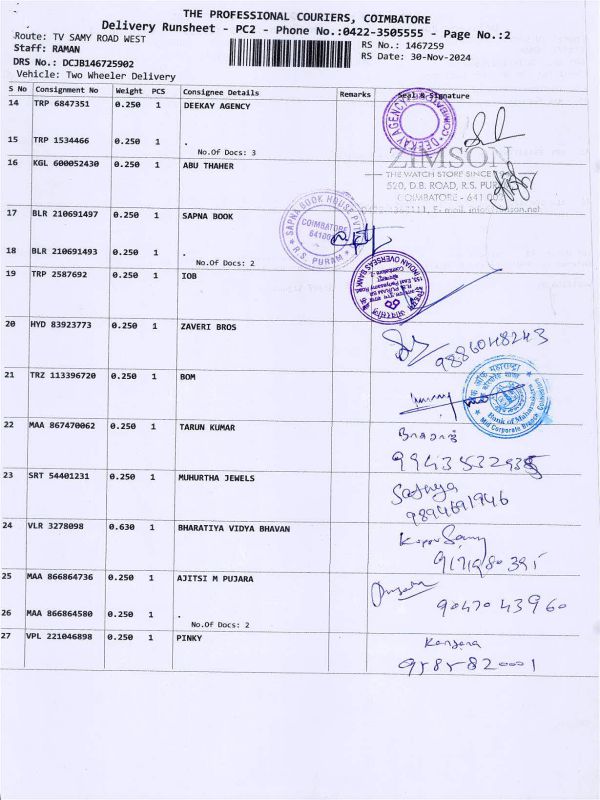 THE PROFESSIONAL COURIERS, COIMBATORE
Delivery Runsheet - PC2 - Phone No.:0422-3505555 - Page No.:2
Route: TV SAMY ROAD WEST
RS No.: 1467259
Staff: RAMAN
RS Date: 30-Nov-2024
DRS No.: DCJB146725902
Vehicle: Two Wheeler Delivery
S No Consignment No Weight PCS Consignee Details Remarks Seal & Signature
14 TRP 6847351 0.250 1 DEEKAY AGENCY
DEEKAY AGENCY
15 TRP 1534466 0.250 1 .
No.Of Docs: 3
ZIMSON
16 KGL 600052430 0.250 1 ABU THAHER
THE WATCH STORE SINCE
520, D.B. ROAD, R.S. PURAM
COIMBATORE - 641 002
17 BLR 210691497 0.250 1 SAPNA BOOK
SAPNA BOOK HOUSE PVT
COIMBATORE
R.S. PURAM
18 BLR 210691493 0.250 1 .
No.Of Docs: 2
19 TRP 2587692 0.250 1 IOB
INDIAN OVERSEAS BANK
20 HYD 83923773 0.250 1 ZAVERI BROS
9886048243
21 TRZ 113396720 0.250 1 BOM
Bank of Maharashtra
Mid Corporate Branch
22 MAA 867470062 0.250 1 TARUN KUMAR
23 SRT 54401231 0.250 1 MUHURTHA JEWELS
Sathya
9894691946
24 VLR 3278098 0.630 1 BHARATIYA VIDYA BHAVAN
25 MAA 866864736 0.250 1 AJITSI M PUJARA
9047043960
26 MAA 866864580 0.250 1 .
No.Of Docs: 2
27 VPL 221046898 0.250 1 PINKY
9585820001